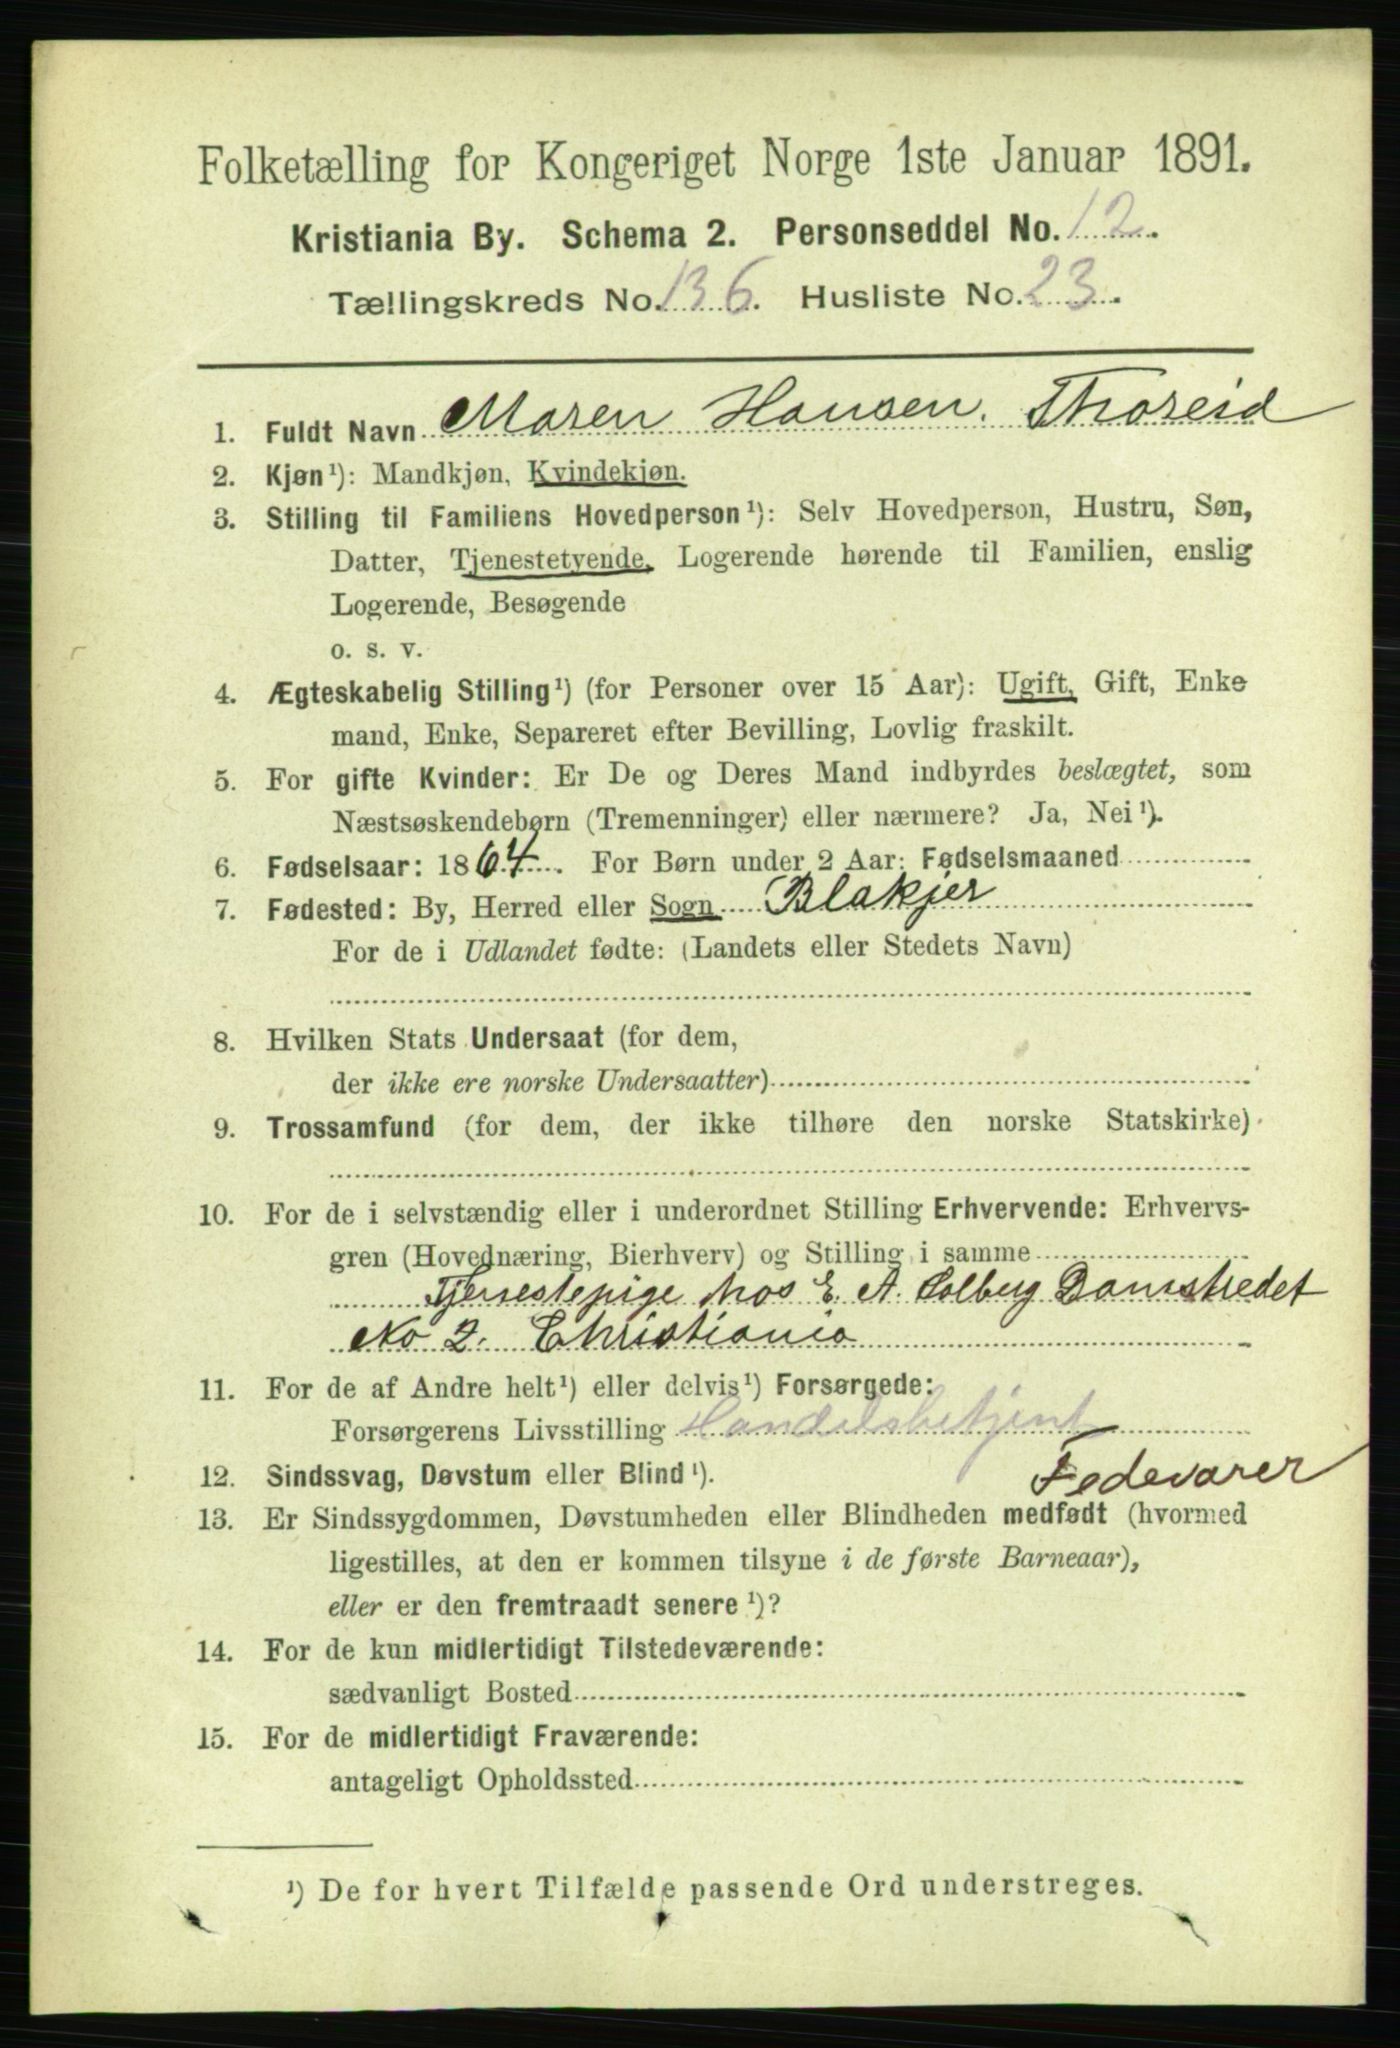 Folketælling for Kongeriget Norge 1ste Januar 1891.
Kristiania By. Schema 2. Personseddel No. 12.
Tællingskreds No. 136. Husliste No. 23.
1. Fuldt Navn Maren Hansen. Thoreid
2. Kjøn ¹): Mandkjøn, Kvindekjøn.
3. Stilling til Familiens Hovedperson ¹): Selv Hovedperson, Hustru, Søn,
Datter, Tjenestetyende, Logerende hørende til Familien, enslig
Logerende, Besøgende
o. s. v.
4. Ægteskabelig Stilling ¹) (for Personer over 15 Aar): Ugift, Gift, Enke
mand, Enke, Separeret efter Bevilling, Lovlig fraskilt.
5. For gifte Kvinder: Er De og Deres Mand indbyrdes beslægtet, som
Næstsøskendebørn (Tremenninger) eller nærmere? Ja, Nei ¹).
6. Fødselsaar: 1864. For Børn under 2 Aar: Fødselsmaaned
7. Fødested: By, Herred eller Sogn Blakjer
For de i Udlandet fødte: (Landets eller Stedets Navn)
8. Hvilken Stats Undersaat (for dem,
der ikke ere norske Undersaatter)
9. Trossamfund (for dem, der ikke tilhøre den norske Statskirke)
10. For de i selvstændig eller i underordnet Stilling Erhvervende: Erhvervs-
gren (Hovednæring, Bierhverv) og Stilling i samme
Tjenestepige hos E. A. Solberg Damstredet
No 2. Christiania
11. For de af Andre helt ¹) eller delvis ¹) Forsørgede:
Forsørgerens Livsstilling Handelsbetjent
Fedevarer
12. Sindssvag, Døvstum eller Blind ¹).
13. Er Sindssygdommen, Døvstumheden eller Blindheden medfødt (hvormed
ligestilles, at den er kommen tilsyne i de første Barneaar),
eller er den fremtraadt senere ¹)?
14. For de kun midlertidigt Tilstedeværende:
sædvanligt Bosted
15. For de midlertidigt Fraværende:
antageligt Opholdssted
¹) De for hvert Tilfælde passende Ord understreges.